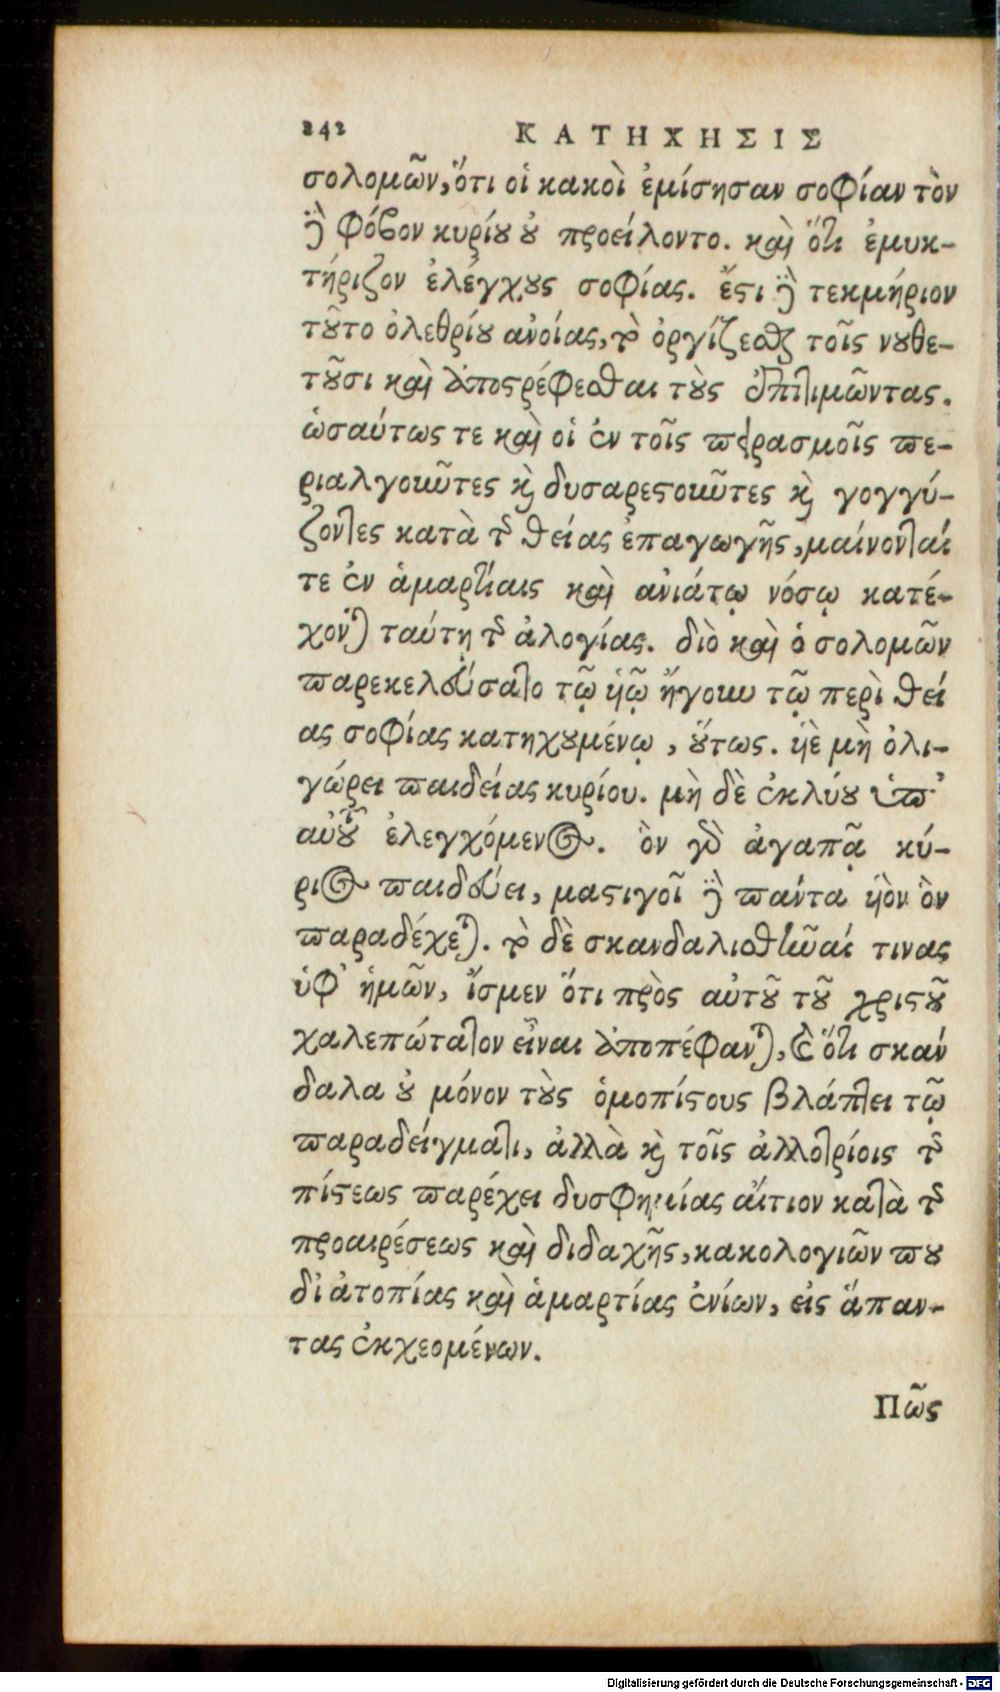 242 ΚΑΤΗΧΗΣΙΣ
σολομῶν, ὅτι οἱ κακοὶ ἐμίσησαν σοφίαν τὸν
δὲ φόβον κυρίου οὐ προείλοντο. καὶ ὅτι ἐμυκ-
τήριζον ἐλέγχους σοφίας. ἔστι δὲ τεκμήριον
τοῦτο ὀλεθρίου ἀνοίας, τὸ ὀργίζεσθαι τοῖς νουθε-
τοῦσι καὶ ἀποστρέφεσθαι τοὺς ἐπιτιμῶντας.
ὡσαύτως τε καὶ οἱ ἐν τοῖς πειρασμοῖς πε-
ριαλγοιωῦτες καὶ δυσαρεστοιωῦτες καὶ γογγύ-
ζοντες κατὰ τῆς θείας ἐπαγωγῆς, μαίνονταί
τε ἐν ἁμαρτίαις καὶ ἀνιάτῳ νόσῳ κατέ-
χονται ταύτῃ τῆς ἀλογίας. διὸ καὶ ὁ σολομῶν
παρεκελεύσατο τῷ υἱῷ ἤγουν τῷ περὶ θεί
ας σοφίας κατηχουμένῳ, οὕτως. υἱὲ μὴ ὀλι-
γώρει παιδείας κυρίου. μὴ δὲ ἐκλύου ὑπ'
αὐτοῦ ἐλεγχόμενος. ὃν γὰρ ἀγαπᾷ κύ-
ριος παιδεύει, μαστιγοῖ δὲ πάντα υἱὸν ὃν
παραδέχεται. τὸ δὲ σκανδαλισθῆναί τινας
ὑφ' ἡμῶν, ἴσμεν ὅτι πρὸς αὐτοῦ τοῦ χριστοῦ
χαλεπώτατον εἶναι ἀποπέφανται, καὶ ὅτι σκάν
δαλα οὐ μόνον τοὺς ὁμοπίστους βλάπτει τῷ
παραδείγματι, ἀλλὰ καὶ τοῖς ἀλλοτρίοις τῆς
πίστεως παρέχει δυσφημίας αἴτιον κατὰ τῆς
προαιρέσεως καὶ διδαχῆς, κακολογιῶν που
δι ἀτοπίας καὶ ἁμαρτίας ἐνίων, εἰς ἅπαν-
τας ἐκχεομένων.
Πῶς
Digitalisierung gefördert durch die Deutsche Forschungsgemeinschaft - DFG